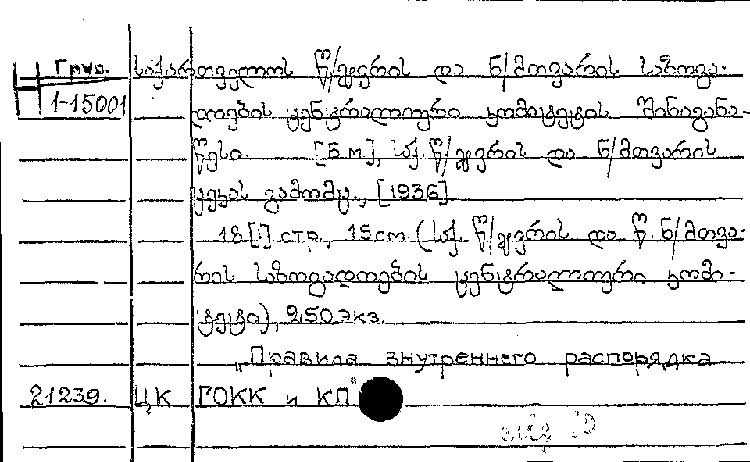 Груз. საქართველოს წ/ჯვრის და ნ/მთვარის საზოგა-
1-15001 დოების ცენტრალური კომიტეტის შინაგანა-
წესი. [Б.м.], საქ. წ/ჯვრის და ნ/მთვარის
ცეკას გამომც., [1936]
18[.] стр., 15 cm (საქ. წ/ჯვრის და წ. ნ/მთვა-
რის საზოგადოების ცენტრალური კომი-
ტეტი), 250 экз.
„Правила внутреннего распорядка
21239. ЦК ГОКК и КП"